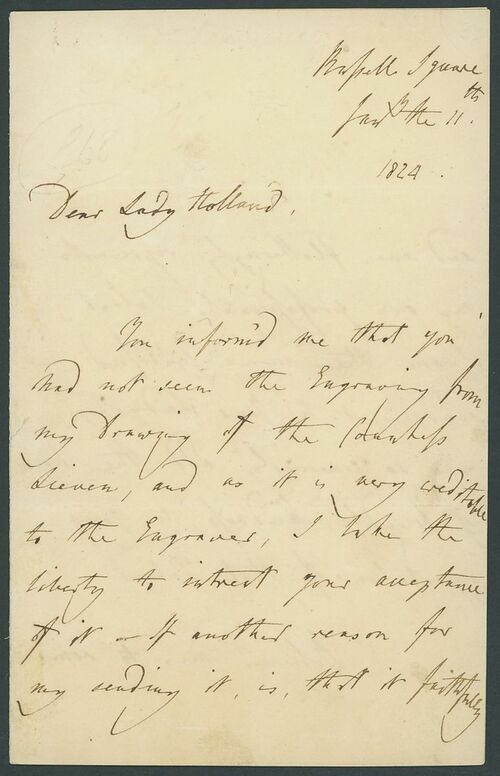 Russell Square
Jany the 11th.
1824.
Dear Lady Holland,
You inform'd me that you
had not seen the Engraving from
my Drawing of the Countess
Lieven, and as it is very creditable
to the Engraver, I take the
liberty to intreat your acceptance
of it — If another reason for
my sending it, is, that it faithfully